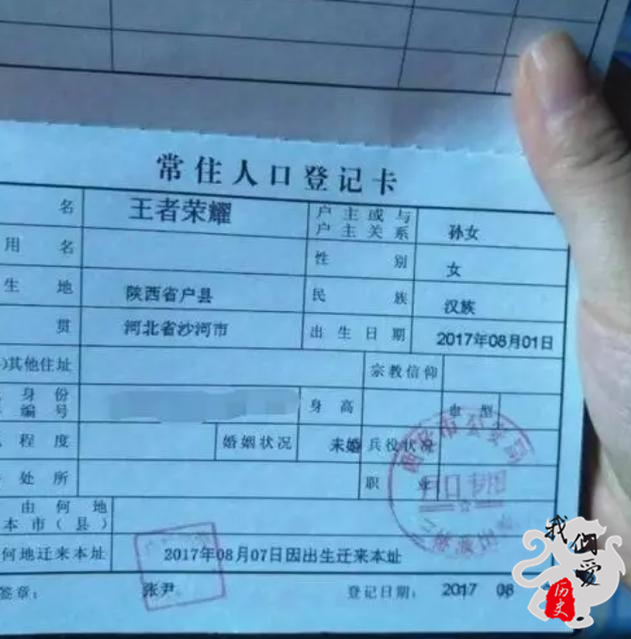 常住人口登记卡
名 王者荣耀 户主或与户主关系 孙女
用名 性别 女
生地 陕西省户县 民族 汉族
贯 河北省沙河市 出生日期 2017年08月01日
)其他住址 宗教信仰
身份 编号 身高 血型
程度 婚姻状况 未婚 兵役状况
处所 职业
由何地
本市(县)
何地迁来本址 2017年08月07日因出生迁来本址
签章: 张尹 登记日期: 2017 08
市公安局
户口专用
我们爱
历史